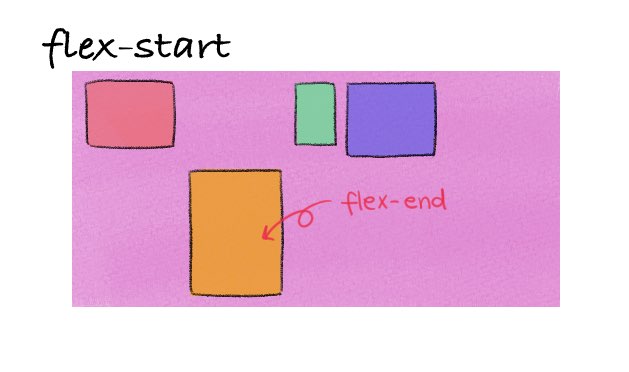 flex-start
flex-end